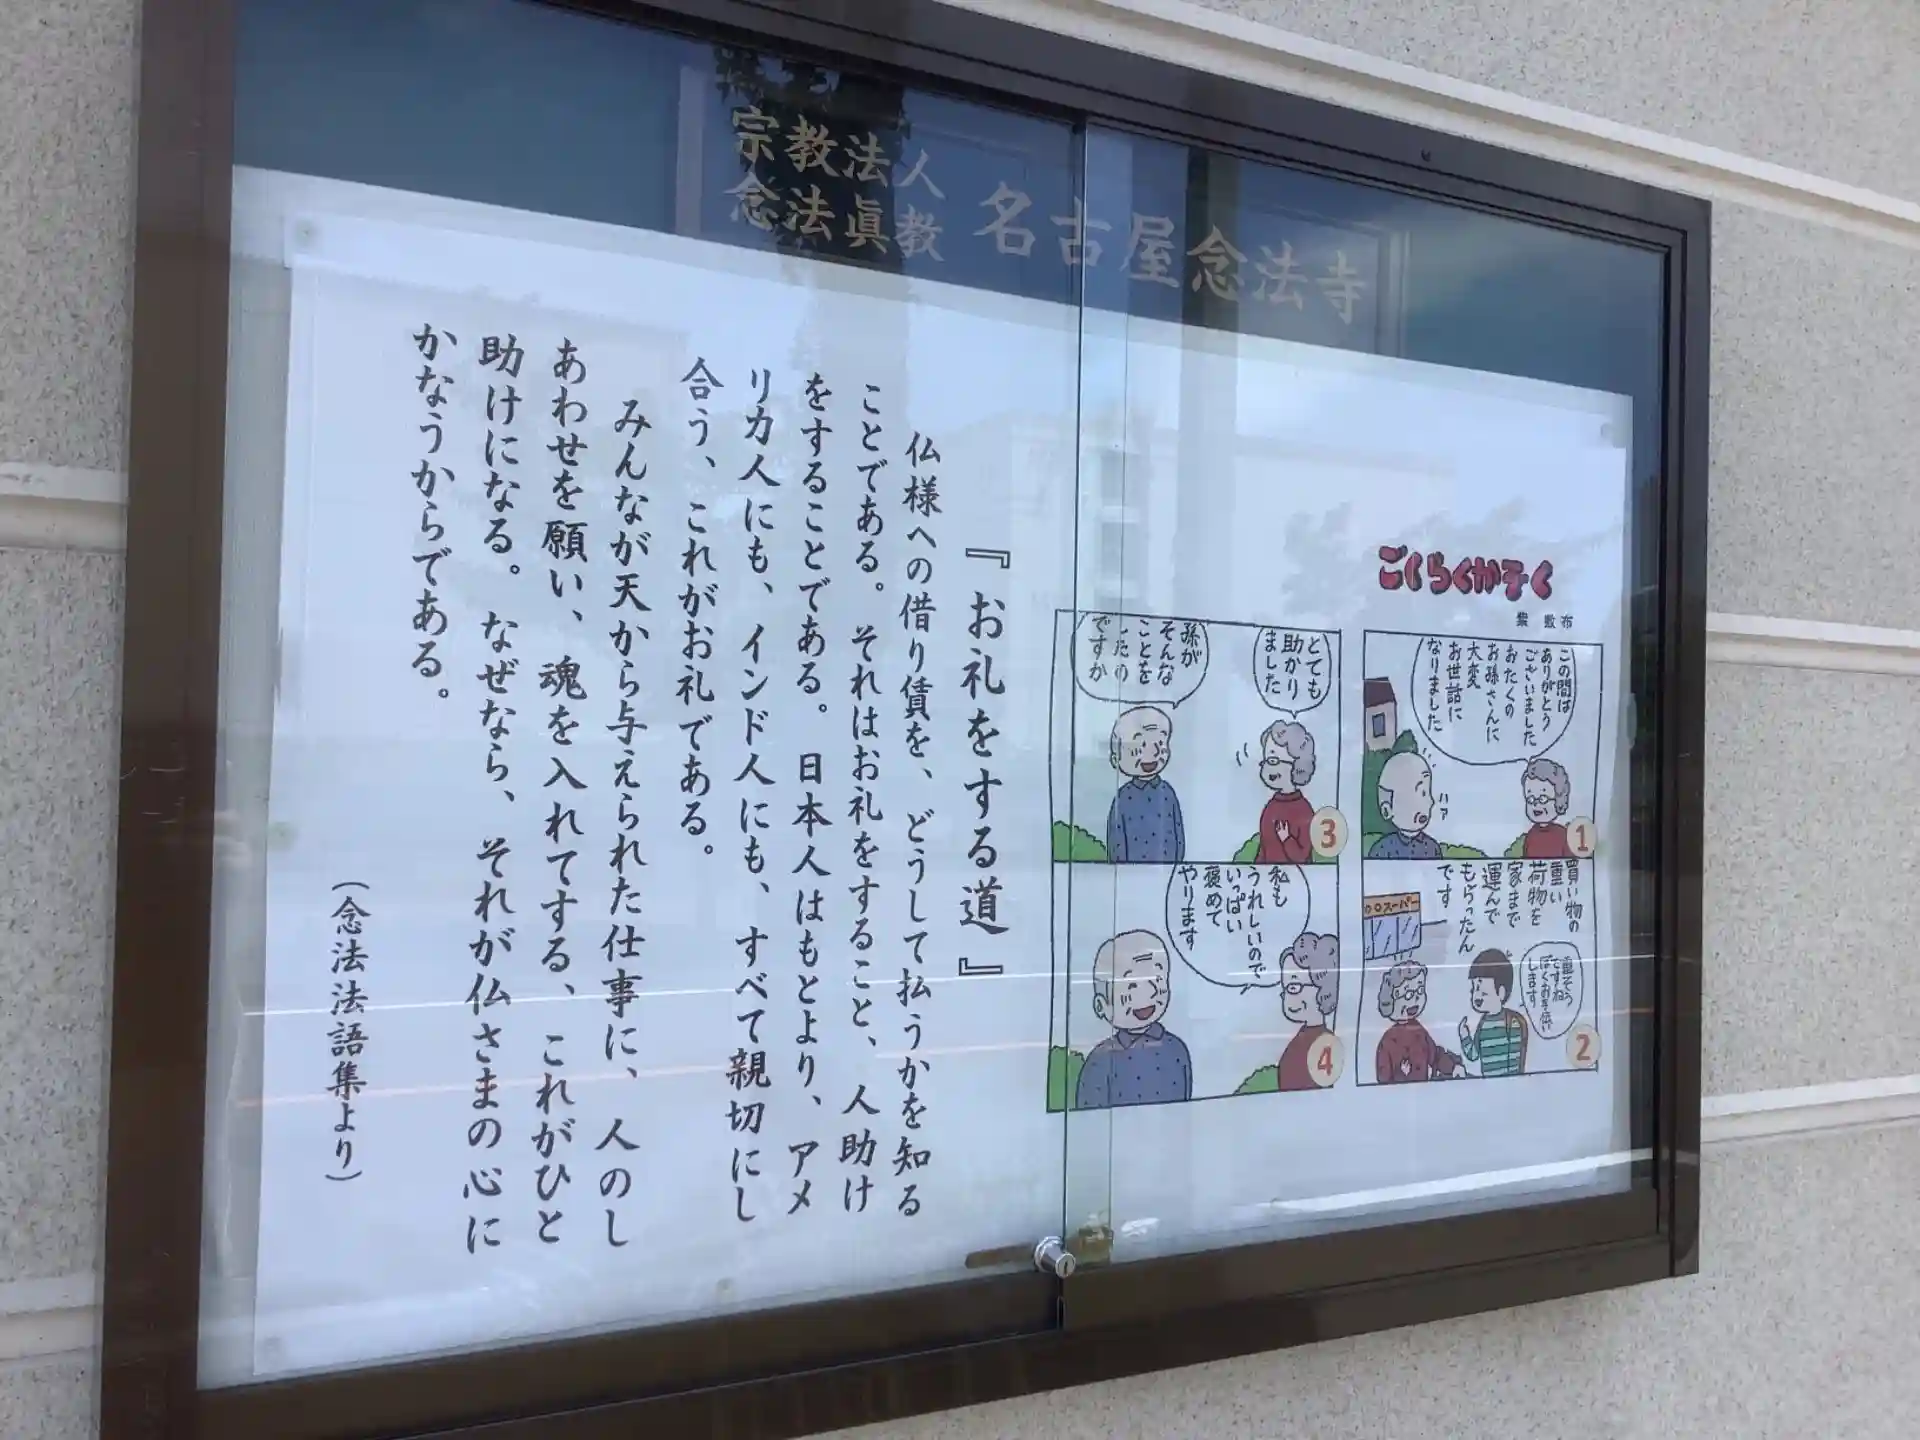 宗教法人
念法眞教
名古屋念法寺
ごくらくかぞく
紫 敷布
この間は
ありがとう
ございました
おたくの
お孫さんに
大変
お世話に
なりました
ハァ
1
買い物の
重い
荷物を
家まで
運んで
もらったん
です
○○スーパー
重そう
ですね
ぼくお手伝い
します
2
とても
助かり
ました
孫が
そんな
ことを
したの
ですか
3
私も
うれしいので
いっぱい
褒めて
やります
4
『お礼をする道』
仏様への借り賃を、どうして払うかを知る
ことである。それはお礼をすること、人助け
をすることである。日本人はもとより、アメ
リカ人にも、インド人にも、すべて親切にし
合う、これがお礼である。
みんなが天から与えられた仕事に、人のし
あわせを願い、魂を入れてする、これがひと
助けになる。なぜなら、それが仏さまの心に
かなうからである。
（念法法語集より）